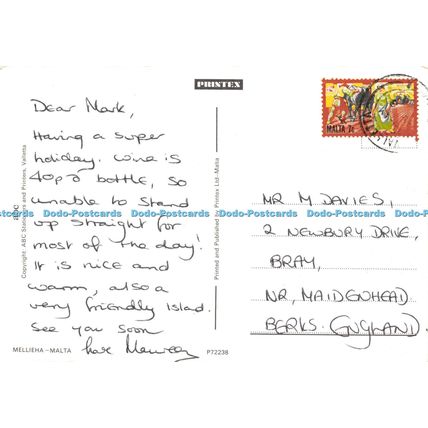 PRINTEX
Dear Mark,
Having a super
holiday. Wine is
40p a bottle, so
unable to stand
up straight for
most of the day!
It is nice and
warm, also a
very friendly Island.
See you soon
love Maureen
MELLIEHA – MALTA
P72238
Copyright: ABC Stationers and Printers, Valletta
Printed and Published by Printex Ltd–Malta
MALTA
MR M DAVIES,
2 NEWBURY DRIVE,
BRAY,
NR, MAIDENHEAD
BERKS. ENGLAND.
Dodo-Postcards Dodo-Postcards Dodo-Postcards Dodo-Postcards